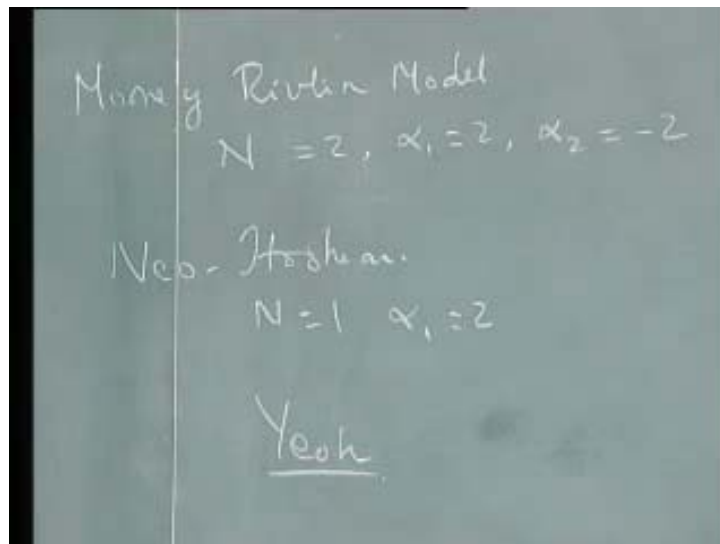 Mooney Rivlin Model
N = 2, α₁ = 2, α₂ = -2
Neo-Hookean.
N = 1 α₁ = 2
Yeoh